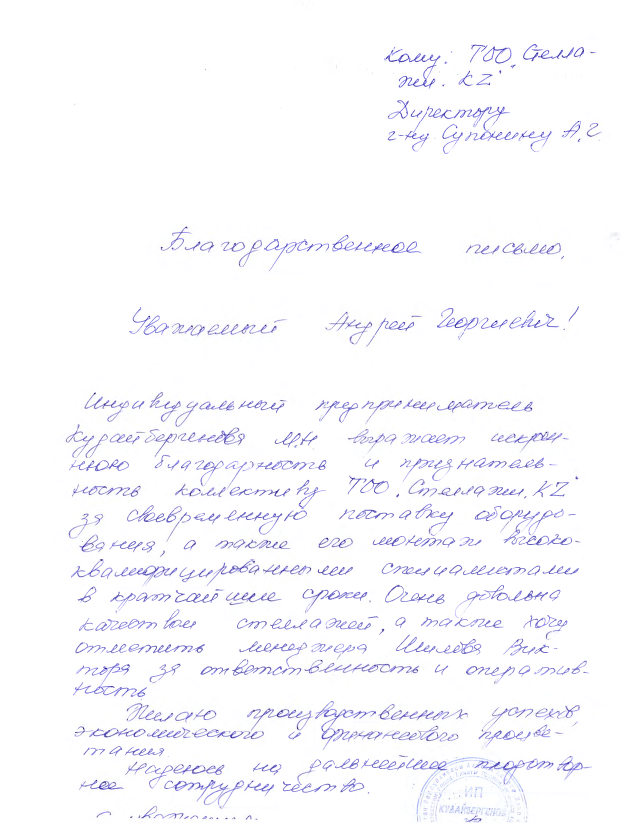 Кому: ТОО „Стелла-
жи. KZ"
Директору
г-ну Супонину А.Г.
Благодарственное письмо.
Уважаемый Андрей Георгиевич!
Индивидуальный предприниматель
Кудайбергенова М.Н. выражает искрен-
нюю благодарность и признатель-
ность коллективу ТОО „Стеллажи. KZ"
за своевременную поставку оборудо-
вания, а также его монтаж высоко-
квалифицированными специалистами
в кратчайшие сроки. Очень довольна
качеством стеллажей, а также хочу
отметить менеджера Шилова Вик-
тора за ответственность и оператив-
ность
Желаю производственных успехов,
экономического и финансового процве-
тания
Надеюсь на дальнейшее плодотвор-
ное сотрудничество.
ИП
КУДАЙБЕРГЕНОВ